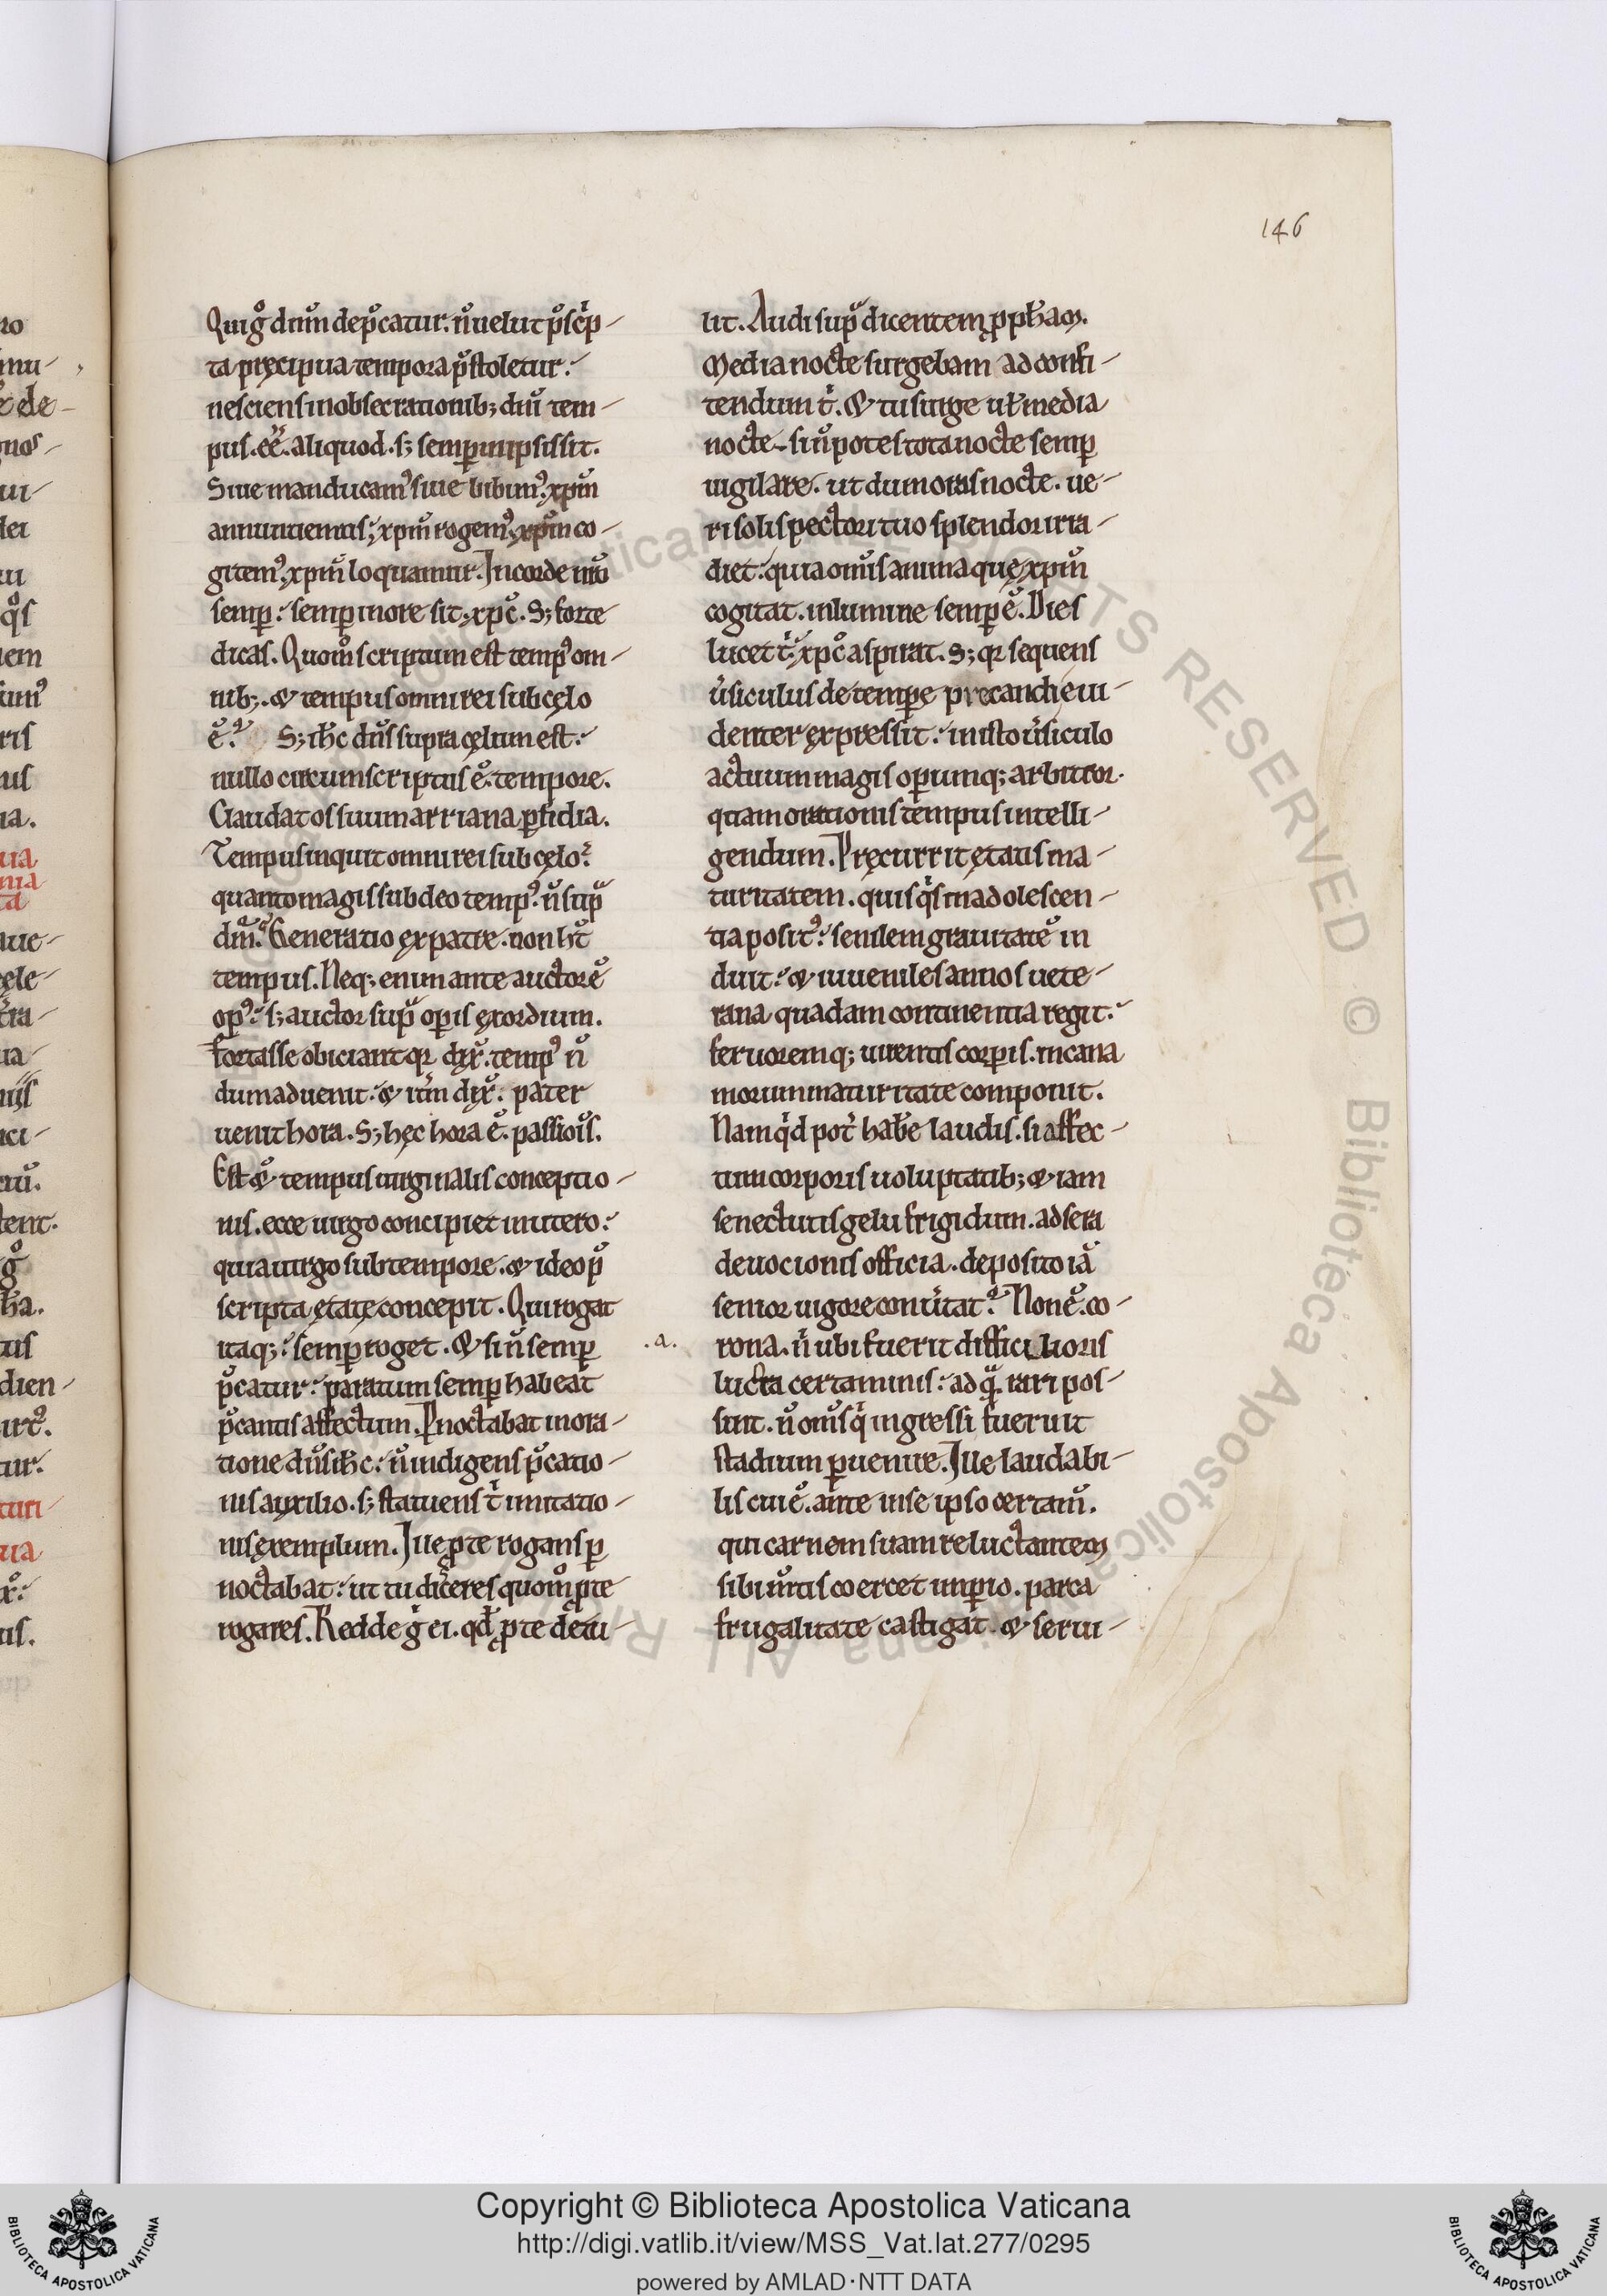 146
Quig̊ dñm dep̃catur. ñ uelut p̃scͥp-
ta pręcipua tempora p̃stoletur:
nesciens in obsecrationib; diũ tem-
pus. eẽ. aliquod. s; semper in ipsis sit.
Siue manducamꝰ siue bibimꝰ. xp̃m
annuntiemus; xp̃m rogemꝰ. xp̃m co-
gitemꝰ. xp̃m loquamur. In corde nr̃o
semꝑ: semꝑ in ore sit. xp̃c. S; forte
dicas. Quom̊ scriptum est tempꝰ om-
nib;. & tempus omni rei sub cęlo
ẽ. S; ih̃c dñs supra cęlum est:
nullo circumscriptus ẽ. tempore.
Claudat os suum arriana ꝑfidia.
Tempus inquit omni rei sub cęlo:
quanto magis sub deo tempꝰ. ñ suꝑ
dm̃. Generatio ex patre. non ht̃
tempus. Neq; enim ante auctorẽ
opꝰ: s; auctor suꝑ oꝑis exordium.
Fortasse obiciant qꝛ dix̃. tempꝰ ñ
dum aduenit: & itm̃ dix̃: pater
uenit hora. S; hęc hora ẽ. passiõis.
Est & tempus uirginalis conceptio-
nis. ecce uirgo concipiet in utero:
quia uirgo sub tempore. & ideo p̃
scripta ętate concepit. Qui rogat
itaq;: semꝑ roget. & si ñ semꝑ
p̃catur: paratum semꝑ habeat
p̃cantis affectum. Pnoctabat in ora-
tione dñs ih̃c: ñ indigens p̃catio-
nis auxilio. s; statuens tͥ imitatio-
nis exemplum. Ille ꝓ te rogans ꝑ
noctabat: ut tu diceres quom̊ ꝓ te
rogares. Redde gͥ ei. qđ ꝓ te detu-
lit. Audi suꝑ dicentem ꝓph̃am.
Media nocte surgebam ad confi-
tendum tͥ. & tu surge uł media
nocte. si ñ potes tota nocte semꝑ
uigilare. ut dum oras nocte. ue-
ri solis pectori tuo splendor irra-
diet: quia om̃is anima quę xp̃m
cogitat. in lumine semꝑ ẽ. Dies
lucet tͥ. xp̃c aspirat. S; qꝛ sequens
ũsiculus de temꝑe precandi eui-
denter expressit: in isto ũsiculo
actuum magis oꝑumq; arbitror.
quam orationis tempus intelli-
gendum. Pręcurrit ętatis ma-
turitatem. quisqͥs in adolescen-
tia positꝰ: senilem grauitatẽ in
duit: & iuueniles annos uete-
rana quadam continentia regit:
feruoremq; uirentis corꝑis. in cana
morum maturitate componit.
Nam qͥd potͥ habe laudis. si affec-
tum corporis uoluptatib; & iam
senectutis gelu frigidum. ad sera
deuocionis officia. deposito iã
senior uigore conũtat. Non ẽ. co-
.a. rona. nͥ ubi fuerit difficilioris
lucta certaminis: ad q̃. rari pos-
sint. ñ om̃s qͥ ingressi fuerint
stadium ꝑuenire. Ille laudabi-
lis cui ẽ. ante in se ipso certam̃.
qui carnem suam reluctantem
sibi uirtutis coercet imꝑio. parca
frugalitate castigat. & serui-
Copyright © Biblioteca Apostolica Vaticana
http://digi.vatlib.it/view/MSS_Vat.lat.277/0295
powered by AMLAD·NTT DATA
BIBLIOTECA APOSTOLICA VATICANA
BIBLIOTECA APOSTOLICA VATICANA